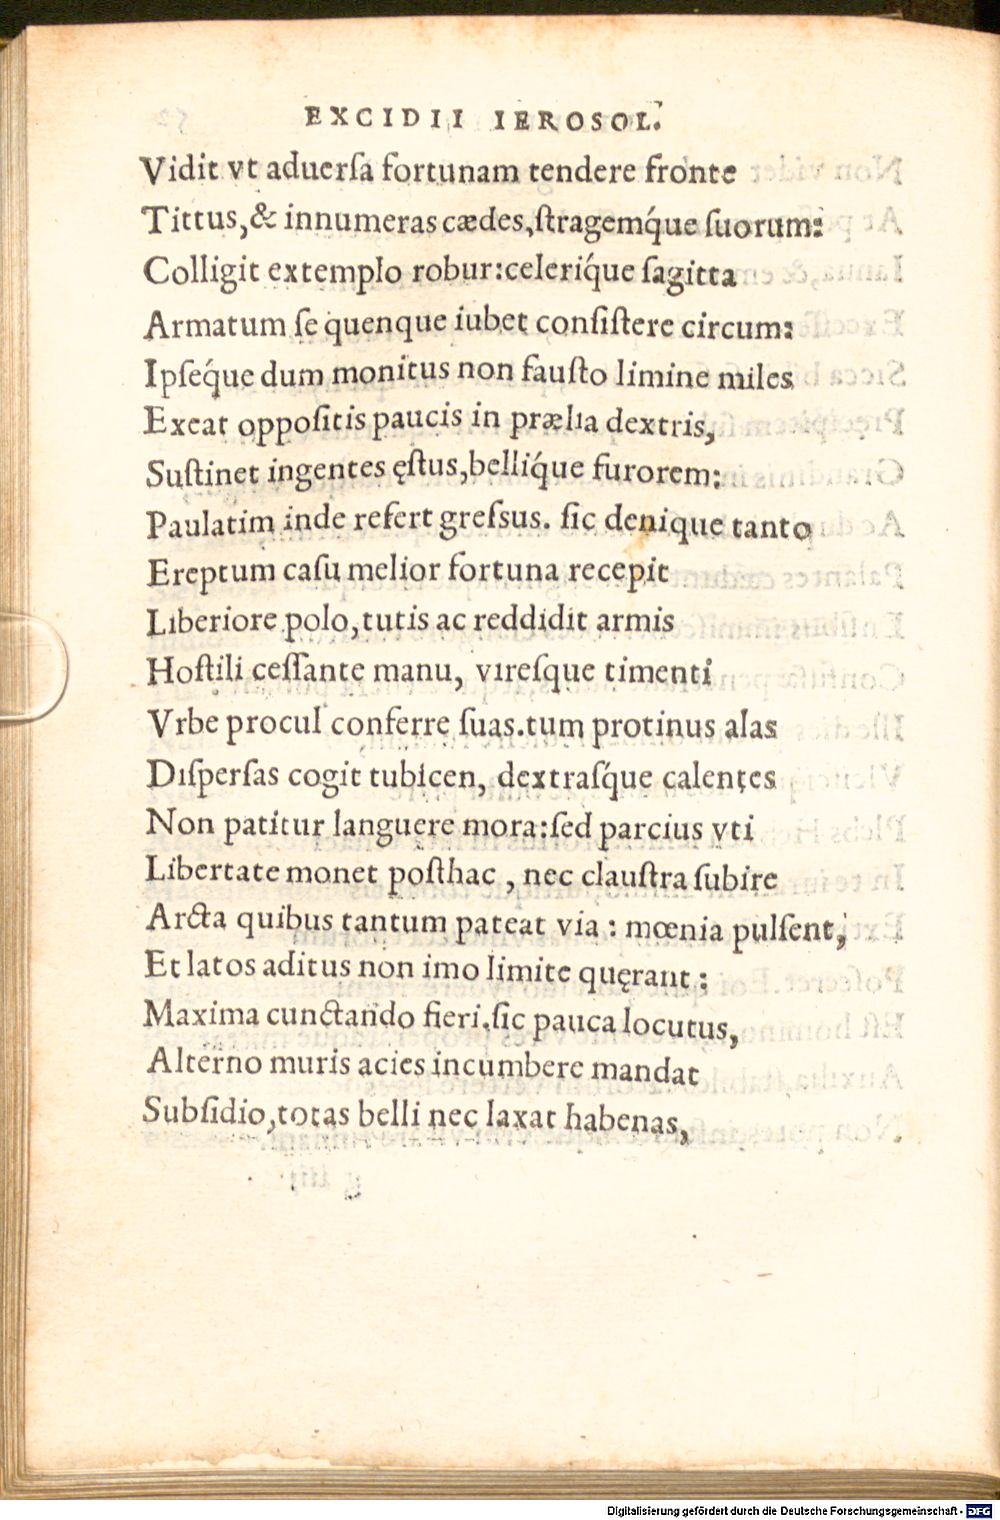 EXCIDII IEROSOL.
Vidit vt aduerſa fortunam tendere fronte
Tittus,& innumeras cædes,ſtragemq́ue ſuorum:
Colligit extemplo robur:celeriq́ue ſagitta
Armatum ſe quenque iubet conſiſtere circum:
Ipſeq́ue dum monitus non fauſto limine miles
Exeat oppoſitis paucis in prælia dextris,
Suſtinet ingentes ęſtus,belliq́ue furorem:
Paulatim inde refert greſsus. ſic denique tanto
Ereptum caſu melior fortuna recepit
Liberiore polo,tutis ac reddidit armis
Hoſtili ceſſante manu, vireſque timenti
Vrbe procul conferre ſuas.tum protinus alas
Diſperſas cogit tubicen, dextraſq́ue calentes
Non patitur languere mora:ſed parcius vti
Libertate monet poſthac , nec clauſtra ſubire
Arcta quibus tantum pateat via : mœnia pulſent,
Et latos aditus non imo limite quęrant :
Maxima cunctando fieri.ſic pauca locutus,
Alterno muris acies incumbere mandat
Subſidio,totas belli nec laxat habenas,
Digitalisierung gefördert durch die Deutsche Forschungsgemeinschaft - DFG